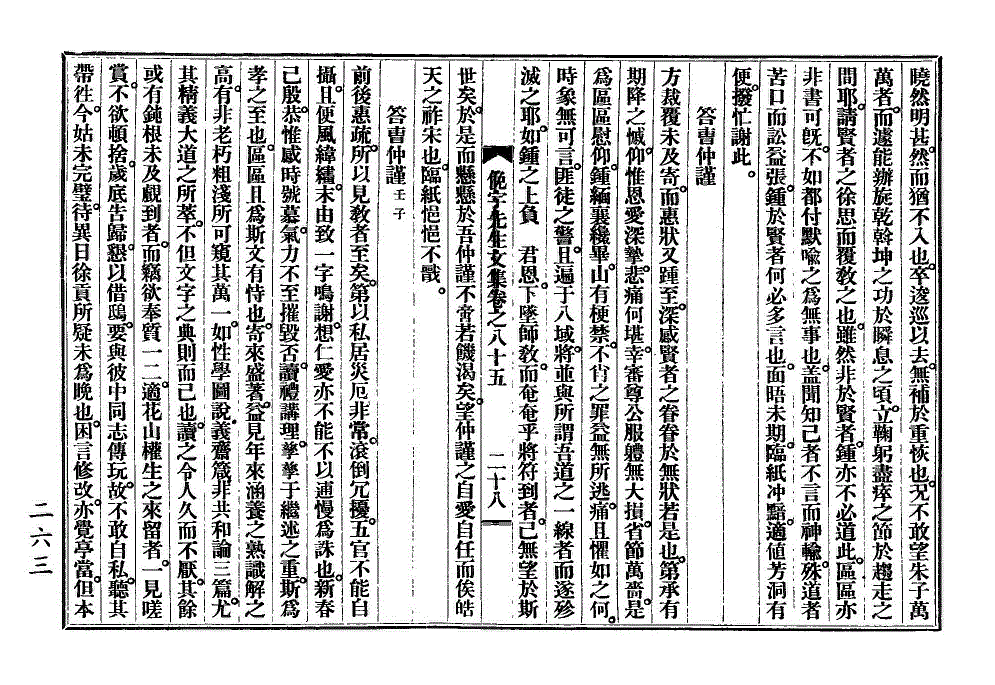 曉然明甚。然而猶不入也。卒逡巡以去。無補於重恢也。况不敢望朱子萬
萬者。而遽能辦旋乾斡坤之功於瞬息之頃。立鞠躬盡瘁之節於趨走之
間耶。請賢者之徐思而覆敎之也。雖然非於賢者。鍾亦不必道此。區區亦
非書可旣。不如都付默喩之爲無事也。盖聞知己者不言而神輸。殊道者
苦口而訟益張。鍾於賢者何必多言也。面晤未期。臨紙冲黯。適値芳洞有
便。撥忙謝此。
答曺仲謹
方裁覆未及寄。而惠狀又踵至。深感賢者之眷眷於無狀若是也。第承有
期降之慽。仰惟恩愛深摯。悲痛何堪。幸審尊公服軆無大損。省節萬嗇。是
爲區區慰仰。鍾緬襄纔畢。山有梗禁。不肖之罪益無所逃。痛且懼如之何。
時象無可言。匪徒之警。且遍于八域。將並與所謂吾道之一線者而遂殄
滅之耶。如鍾之上負　君恩。下墜師敎。而奄奄乎將符到者。已無望於斯
俛宇先生文集卷之八十五　二十八
世矣。於是而懸懸於吾仲謹不啻若饑渴矣。望仲謹之自愛自任而俟皓
天之祚宋也。臨紙悒悒不戩。
答曺仲謹 壬子
前後惠疏。所以見敎者至矣。第以私居災厄非常。滾倒冗擾。五官不能自
攝。且便風緯繣。末由致一字鳴謝。想仁愛亦不能不以逋慢爲誅也。新春
已殷。恭惟感時號慕。氣力不至摧毁否。讀禮講理。孶孶于繼述之重。斯爲
孝之至也。區區且爲斯文有恃也。寄來盛著。益見年來涵養之熟識解之
高。有非老朽粗淺所可窺其萬一。如性學圖說,義齋箴,非共和論三篇。尤
其精義大道之所萃。不但文字之典則而已也。讀之令人久而不厭。其餘
或有鈍根未及覰到者。而竊欲奉質一二。適花山權生之來留者。一見嗟
賞。不欲頓捨。歲底告歸。懇以借鴟。要與彼中同志傳玩。故不敢自私。聽其
帶往。今姑未完璧。待異日徐貢所疑未爲晩也。困言修改。亦覺亭當。但本
二六三